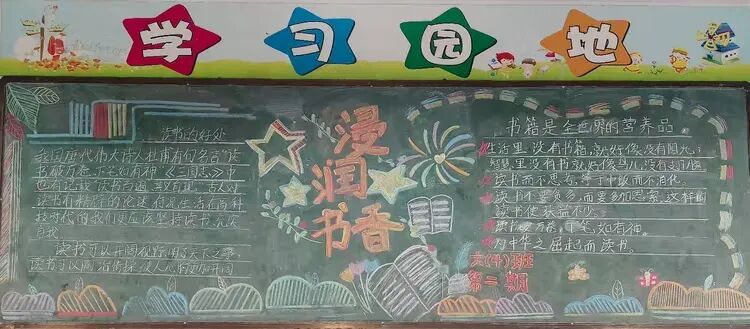 学习园地
读书的好处
我国唐代伟大诗人杜甫有句名言"读
书破万卷,下笔如有神"《三国志》中
也有记载"读书百遍,其义自现"古人对
读书有精辟的论述,何况生活在高科
技时代的我们更应该坚持读书,充实
自我。
读书可以开阔视野,闻天下之事,
读书可以陶冶情操,使人
浸润书香
书籍是全世界的营养品。
生活里没有书籍,就好像没有阳光;
智慧里没有书籍,就好像鸟儿没有翅膀
读书而不思考,等于吃饭而不消化。
读书不要贪多,而要多加思索,这样的
读书使 获益不少。
读书破万卷,下笔如有神。
为中华之崛起而读书。
班
第二期